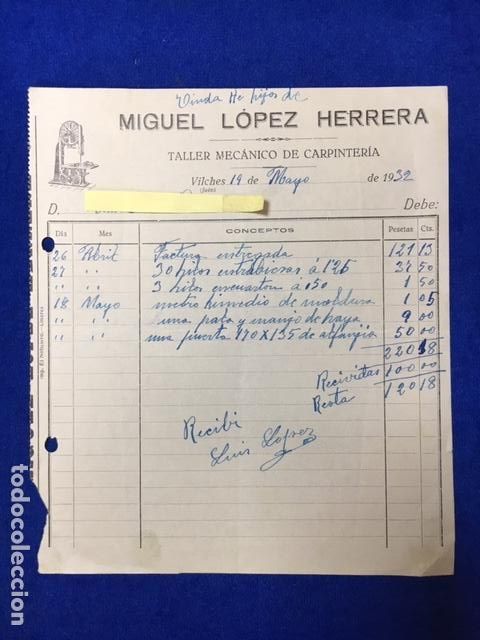 Viuda He hijos de
MIGUEL LÓPEZ HERRERA
TALLER MECÁNICO DE CARPINTERÍA
Vilches 19 de Mayo de 1932
(Jaén)
D. Debe:
Día Mes CONCEPTOS Pesetas Cts.
26 Abril Factura entregada 121 13
27 " " 30 hilos á 1'25 37 50
" " 3 hilos á 0'50 1 50
18 Mayo metro i medio de moldura 1 05
" " una pata y mango de haya 9 00
" " una puerta 170 X 135 de 50 00
220 18
Recividas 100 00
Resta 120 18
Recibi
Luis Lopez
todocoleccion
todocoleccion.net